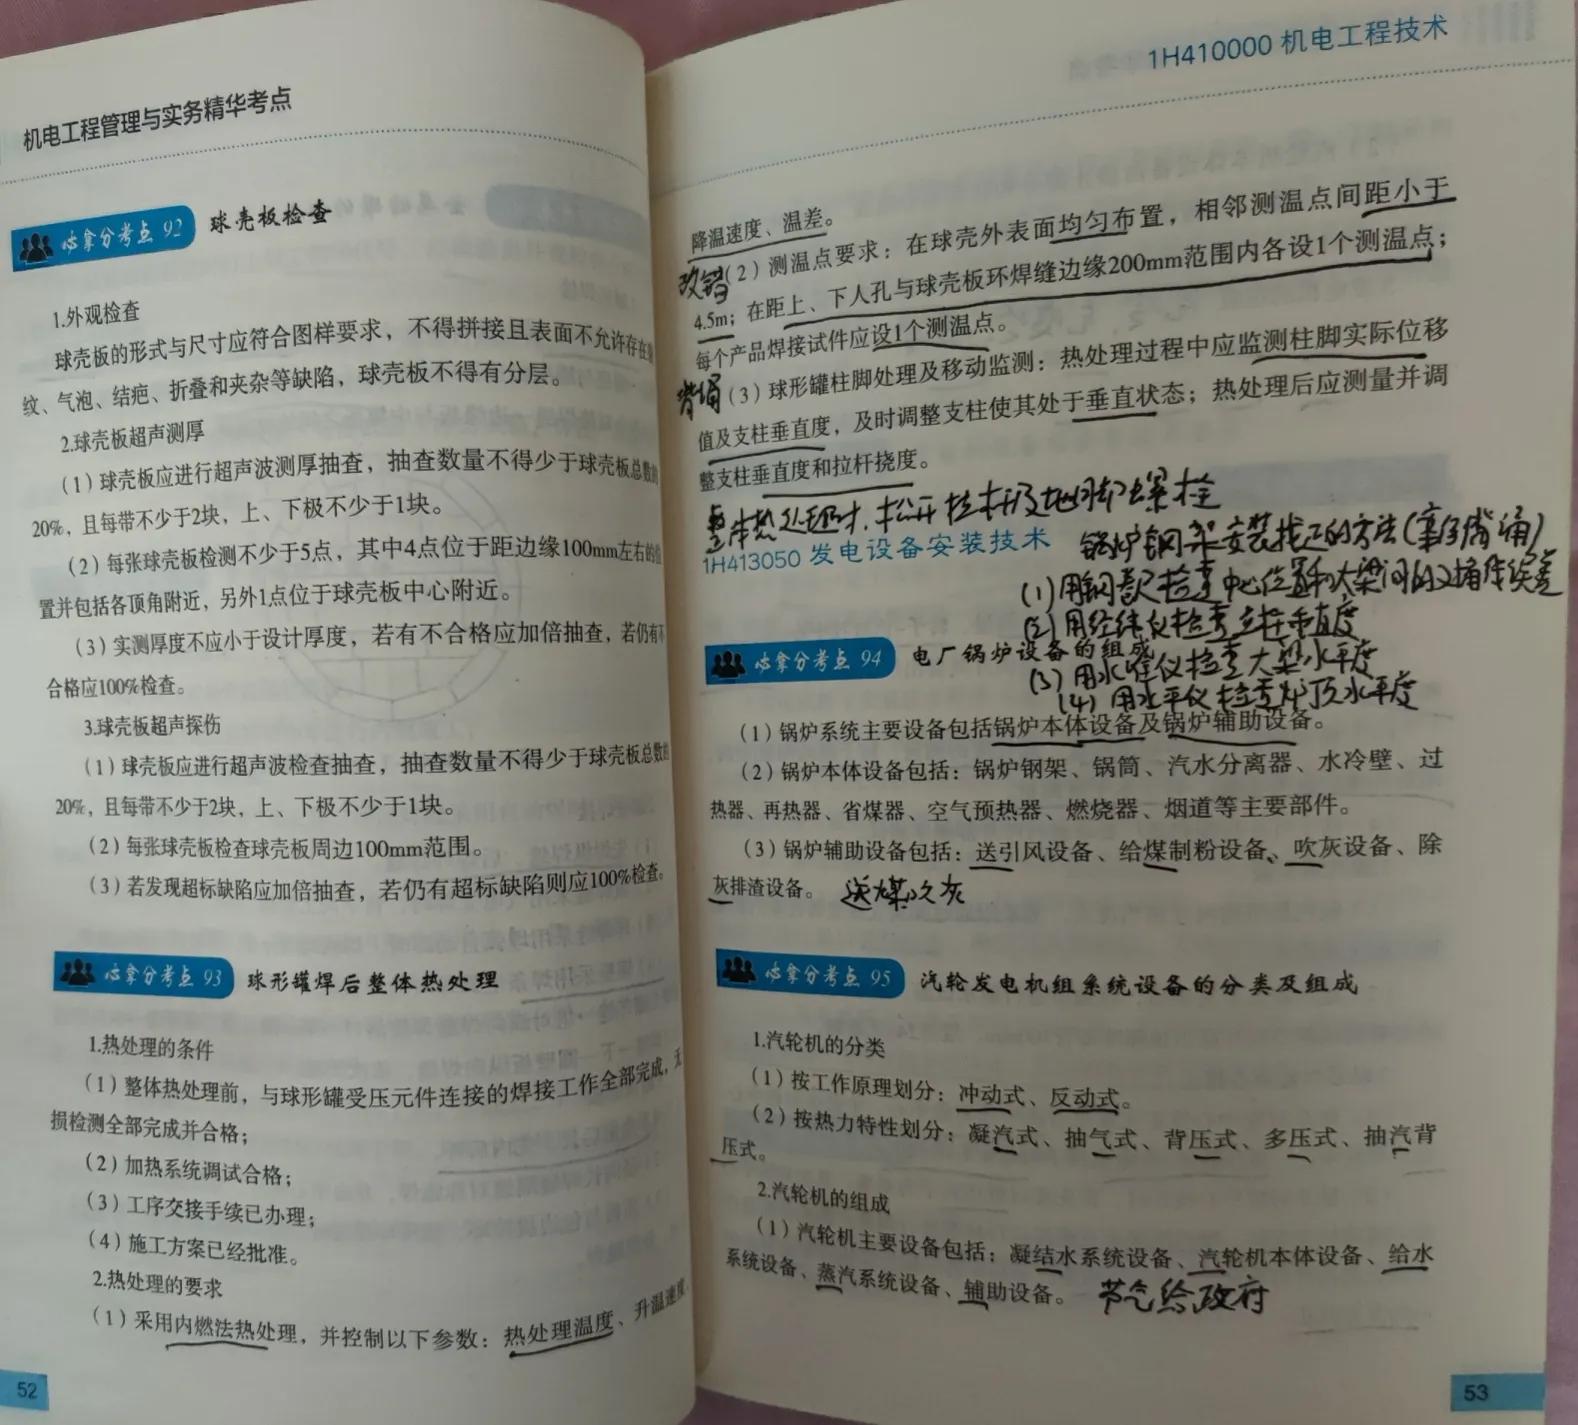 机电工程管理与实务精华考点
必拿分考点 92 球壳板检查
1.外观检查
球壳板的形式与尺寸应符合图样要求，不得拼接且表面不允许存在
纹、气泡、结疤、折叠和夹杂等缺陷，球壳板不得有分层。
2.球壳板超声测厚
（1）球壳板应进行超声波测厚抽查，抽查数量不得少于球壳板总数的
20%，且每带不少于2块，上、下极不少于1块。
（2）每张球壳板检测不少于5点，其中4点位于距边缘100mm左右的位
置并包括各顶角附近，另外1点位于球壳板中心附近。
（3）实测厚度不应小于设计厚度，若有不合格应加倍抽查，若仍有不
合格应100%检查。
3.球壳板超声探伤
（1）球壳板应进行超声波检查抽查，抽查数量不得少于球壳板总数的
20%，且每带不少于2块，上、下极不少于1块。
（2）每张球壳板检查球壳板周边100mm范围。
（3）若发现超标缺陷应加倍抽查，若仍有超标缺陷则应100%检查。
必拿分考点 93 球形罐焊后整体热处理
1.热处理的条件
（1）整体热处理前，与球形罐受压元件连接的焊接工作全部完成，无
损检测全部完成并合格；
（2）加热系统调试合格；
（3）工序交接手续已办理；
（4）施工方案已经批准。
2.热处理的要求
（1）采用内燃法热处理，并控制以下参数：热处理温度、升温速度、
52
1H410000 机电工程技术
降温速度、温差。
改错（2）测温点要求：在球壳外表面均匀布置，相邻测温点间距小于
4.5m；在距上、下人孔与球壳板环焊缝边缘200mm范围内各设1个测温点；
每个产品焊接试件应设1个测温点。
背诵（3）球形罐柱脚处理及移动监测：热处理过程中应监测柱脚实际位移
值及支柱垂直度，及时调整支柱使其处于垂直状态；热处理后应测量并调
整支柱垂直度和拉杆挠度。
整体热处理时，松开拉杆及地脚螺栓
1H413050 发电设备安装技术
锅炉钢架安装找正的方法（案例背诵）
（1）用钢卷尺检查中心位置和大梁间的对角线误差
（2）用经纬仪检查立柱垂直度
（3）用水准仪检查大梁水平度
（4）用水平仪检查炉顶水平度
必拿分考点 94 电厂锅炉设备的组成
（1）锅炉系统主要设备包括锅炉本体设备及锅炉辅助设备。
（2）锅炉本体设备包括：锅炉钢架、锅筒、汽水分离器、水冷壁、过
热器、再热器、省煤器、空气预热器、燃烧器、烟道等主要部件。
（3）锅炉辅助设备包括：送引风设备、给煤制粉设备、吹灰设备、除
灰排渣设备。 送煤吹灰
必拿分考点 95 汽轮发电机组系统设备的分类及组成
1.汽轮机的分类
（1）按工作原理划分：冲动式、反动式。
（2）按热力特性划分：凝汽式、抽气式、背压式、多压式、抽汽背
压式。
2.汽轮机的组成
（1）汽轮机主要设备包括：凝结水系统设备、汽轮机本体设备、给水
系统设备、蒸汽系统设备、辅助设备。 节气给政府
53